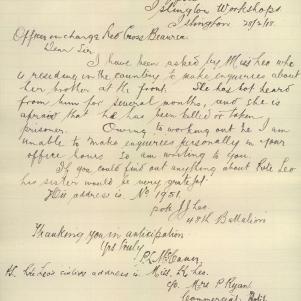 Islington Workshops
Islington 28/2/18
Officer in charge Red Cross Beaurea
Dear Sir
I have been asked by Miss Leo who
is residing in the country to make enquries about
her brother at the front. She has not heard
from him for several months, and she is
afraid that he has been killed or taken
prisoner. Owing to working out he I am
unable to make enqueries personally in your
office hours So am writing to you.
If you could find out anything about Pte Leo
his sister would be very grateful.
His address is No 1951
pte J J Leo
48th Battalion
Thanking you in anticipation
Yrs truly
address is. Miss. Leo.
c/o Mrs P Ryan
Commercial Hotel